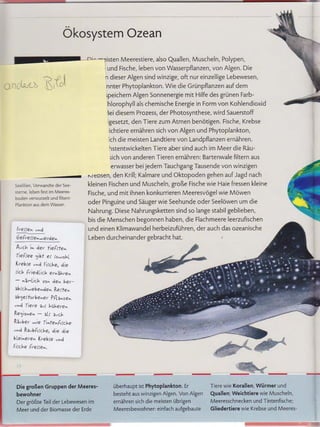 Ökosystem Ozean
anderes Bild
meisten Meerestiere, also Quallen, Muscheln, Polypen,
und Fische, leben von Wasserpflanzen, von Algen. Die
n dieser Algen sind winzige, oft nur einzellige Lebewesen,
nnter Phytoplankton. Wie die Grünpflanzen auf dem
peichern Algen Sonnenergie mit Hilfe des grünen Farb-
hlorophyll als chemische Energie in Form von Kohlendioxid
ei diesem Prozess, der Photosynthese, wird Sauerstoff
gesetzt, den Tiere zum Atmen benötigen. Fische, Krebse
ichtiere ernähren sich von Algen und Phytoplankton,
ich die meisten Landtiere von Landpflanzen ernähren.
stentwickelten Tiere aber sind auch im Meer die Räu-
sich von anderen Tieren ernähren: Bartenwale filtern aus
erwasser bei jedem Tauchgang Tausende von winzigen
Krebsen, den Krill; Kalmare und Oktopoden gehen auf Jagd nach
kleinen Fischen und Muscheln, große Fische wie Haie fressen kleine
Fische, und mit ihnen konkurrieren Meeresvögel wie Möwen
oder Pinguine und Säuger wie Seehunde oder Seelöwen um die
Nahrung. Diese Nahrungsketten sind so lange stabil geblieben,
bis die Menschen begonnen haben, die Flachmeere leerzufischen
und einen Klimawandel herbeizuführen, der auch das ozeanische
Leben durcheinander gebracht hat.
Seelilien, Verwandte der See-
sterne, leben fest im Meeres-
boden verwurzelt und filtern
Plankton aus dem Wasser.
Fressen und
Gefressenwerden
Auch in der tiefsten
Tiefsee gibt es sowohl
Krebse und Fische, die
sich friedlich ernähren
– nämlich von den her-
absinkenden Resten
abgestorbener Pflanzen
und Tiere aus höheren
Regionen – als auch
Räuber wie Tintenfische
und Raubfische, die die
kleineren Krebse und
Fische fressen.
Die großen Gruppen der Meeres-
bewohner
Der größte Teil der Lebewesen im
Meer und der Biomasse der Erde
überhaupt ist Phytoplankton. Er
besteht aus winzigen Algen. Von Algen
ernähren sich die meisten übrigen
Meeresbewohner: einfach aufgebaute
Tiere wie Korallen, Würmer und
Quallen; Weichtiere wie Muscheln,
Meeresschnecken und Tintenfische;
Gliedertiere wie Krebse und Meeres-